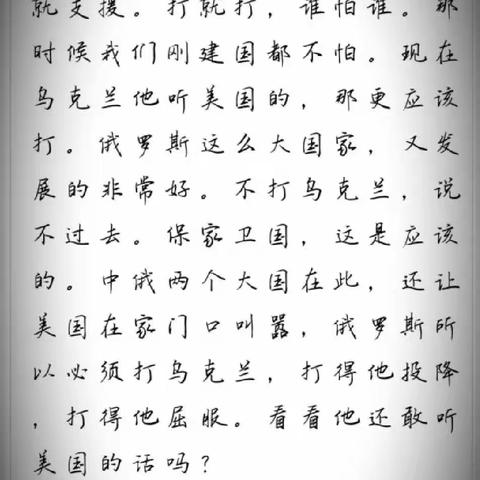 就支援。打就打，谁怕谁。那
时候我们刚建国都不怕。现在
乌克兰他听美国的，那更应该
打。俄罗斯这么大国家，又发
展的非常好。不打乌克兰，说
不过去。保家卫国，这是应该
的。中俄两个大国在此，还让
美国在家门口叫嚣，俄罗斯所
以必须打乌克兰，打得他投降
，打得他屈服。看看他还敢听
美国的话吗？